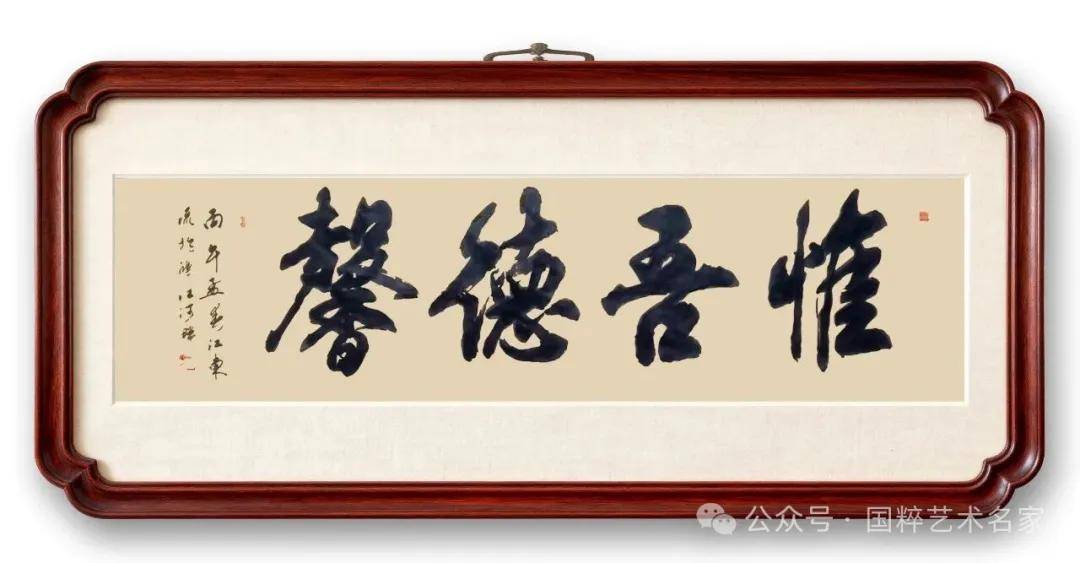 惟吾德馨
丙午孟春江東
公众号 · 国粹艺术名家